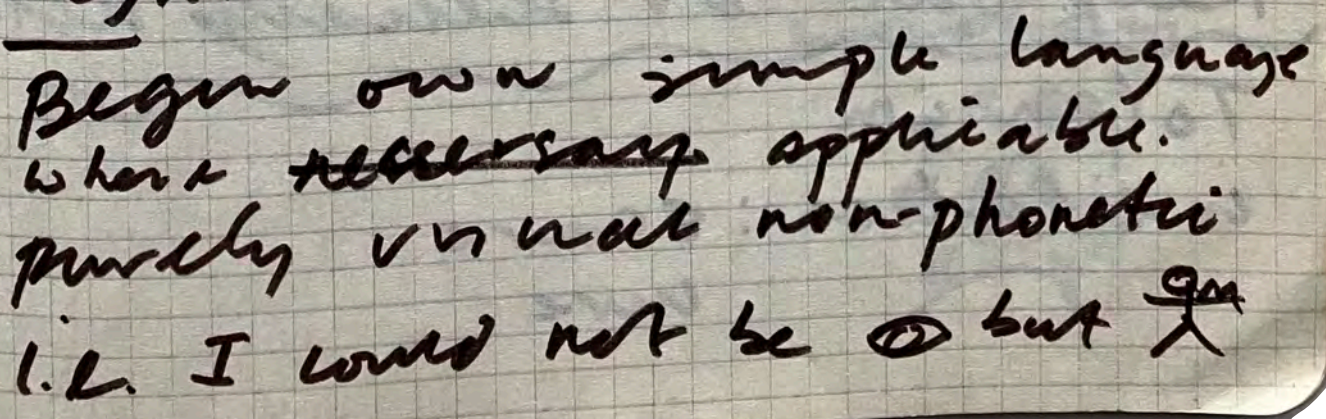 Begin own simple language
where necessary applicable.
purely visual non-phonetic
i.e. I could not be but